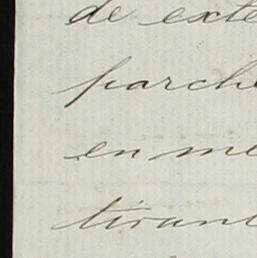 de exte
parche
en me
tirant